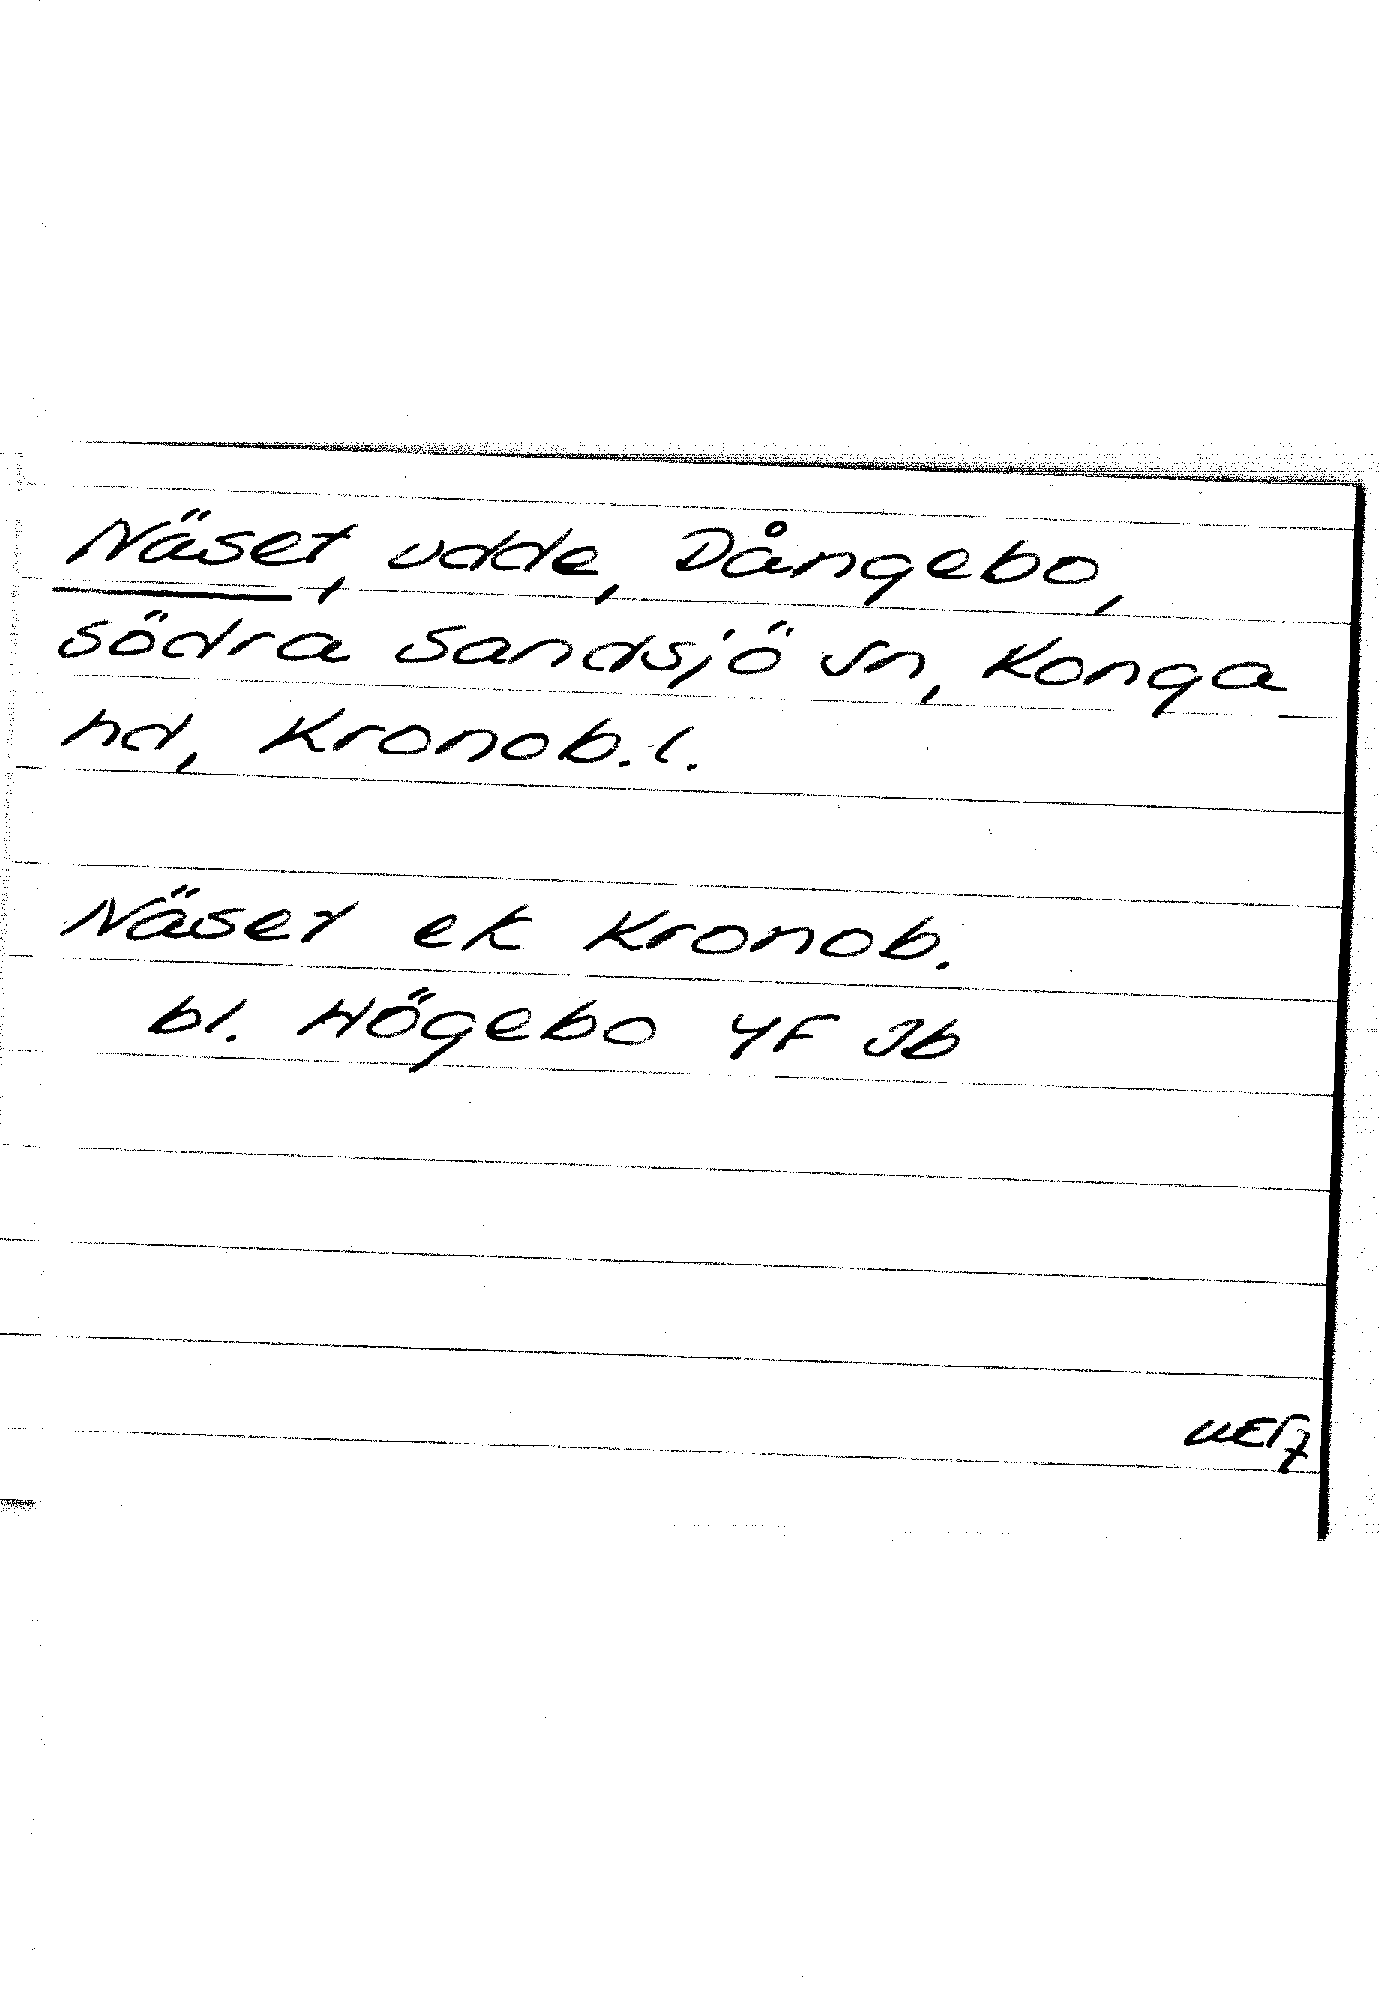 Näset, udde, Dångebo,
södra Sandsjö sn, Konga
hd, Kronob. l.
Näset ek Kronob.
bl. Högebo 4F Jb